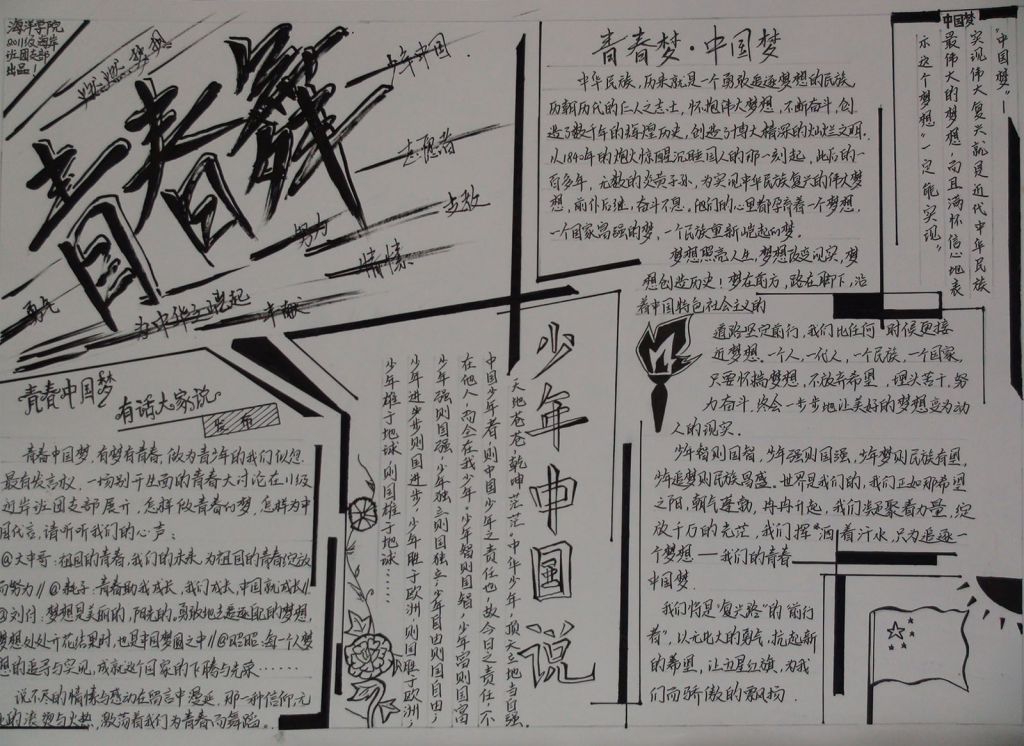 海洋学院
2011级海岸
班团支部
出品！
燃燃独观
青春舞
少年中国
志愿者
勇敢
努力
情愫
勇气
为中华之崛起
奉献
青春中国梦
有话大家说
发布
青春中国梦，有梦有青春，做为青少年的我们似想
最有发言权，一场别开生面的青春大讨论在11级
近岸班团支部展开，怎样做青春的梦，怎样为中
国代言，请听听我们的心声：
@大中哥：祖国的青春，我们的未来，为祖国的青春绽放
而努力//@耗子：青春助我成长，我们成长，中国就成长//
@刘付：梦想是美丽的，阳光的，勇敢地去追逐自己的梦想，
梦想处处开花结果时，也是中国梦圆之中//@昭昭：每一个梦
想的追寻与实现，成就这个国家的飞腾与光荣……
说不尽的情愫与感动在留言中漫延，那一种信仰，无
比的滚烫与火热，激荡着我们为青春而舞蹈。
少年中国说
“天地苍苍，乾坤茫茫，中华少年，顶天立地当自强。
中国少年者，则中国少年之责任也，故今日之责任，不
在他人，而全在我少年。少年智则国智，少年富则国富
少年强则国强，少年独立则国独立，少年自由则国自由，
少年进步则国进步，少年胜于欧洲，则国胜于欧洲，
少年雄于地球，则国雄于地球……
青春梦·中国梦
中华民族，历来就是一个勇敢追逐梦想的民族，
历朝历代的仁人之志士，怀抱伟大梦想，不断奋斗，创
造了数千年的辉煌历史，创造了博大精深的灿烂文明。
从1840年的炮火惊醒沉睡国人的那一刻起，此后的一
百多年，无数的炎黄子孙，为实现中华民族复兴的伟大梦
想，前仆后继，奋斗不息，他们的心里都孕育着一个梦想，
一个国家富强的梦，一个民族重新崛起的梦。
梦想照亮人生，梦想改变现实，梦
想创造历史！梦在前方，路在脚下，沿
着中国特色社会主义的
道路坚定前行，我们比任何一时候更接
近梦想。一个人，一代人，一个民族，一个国家，
只要怀揣梦想，不放弃希望，埋头苦干，努
力奋斗，终会一步步地让美好的梦想变为动
人的现实。
少年智则国智，少年强则国强，少年梦则民族有望，
少年追梦则民族昌盛。世界是我们的，我们正如那希望
之阳，朝气蓬勃，冉冉升起，我们凝聚着力量，绽
放千万的光芒，我们挥洒着汗水，只为追逐一
个梦想——我们的青春
中国梦
我们将是“复兴路”的“前行
者”，以无比大的勇气，扛起新
的希望，让五星红旗，为我
们而骄傲的飘扬
中国梦
“中国梦”—
实现伟大复兴就是近代中华民族
最伟大的梦想，而且满怀信心地表
示这个梦想“一定能实现”